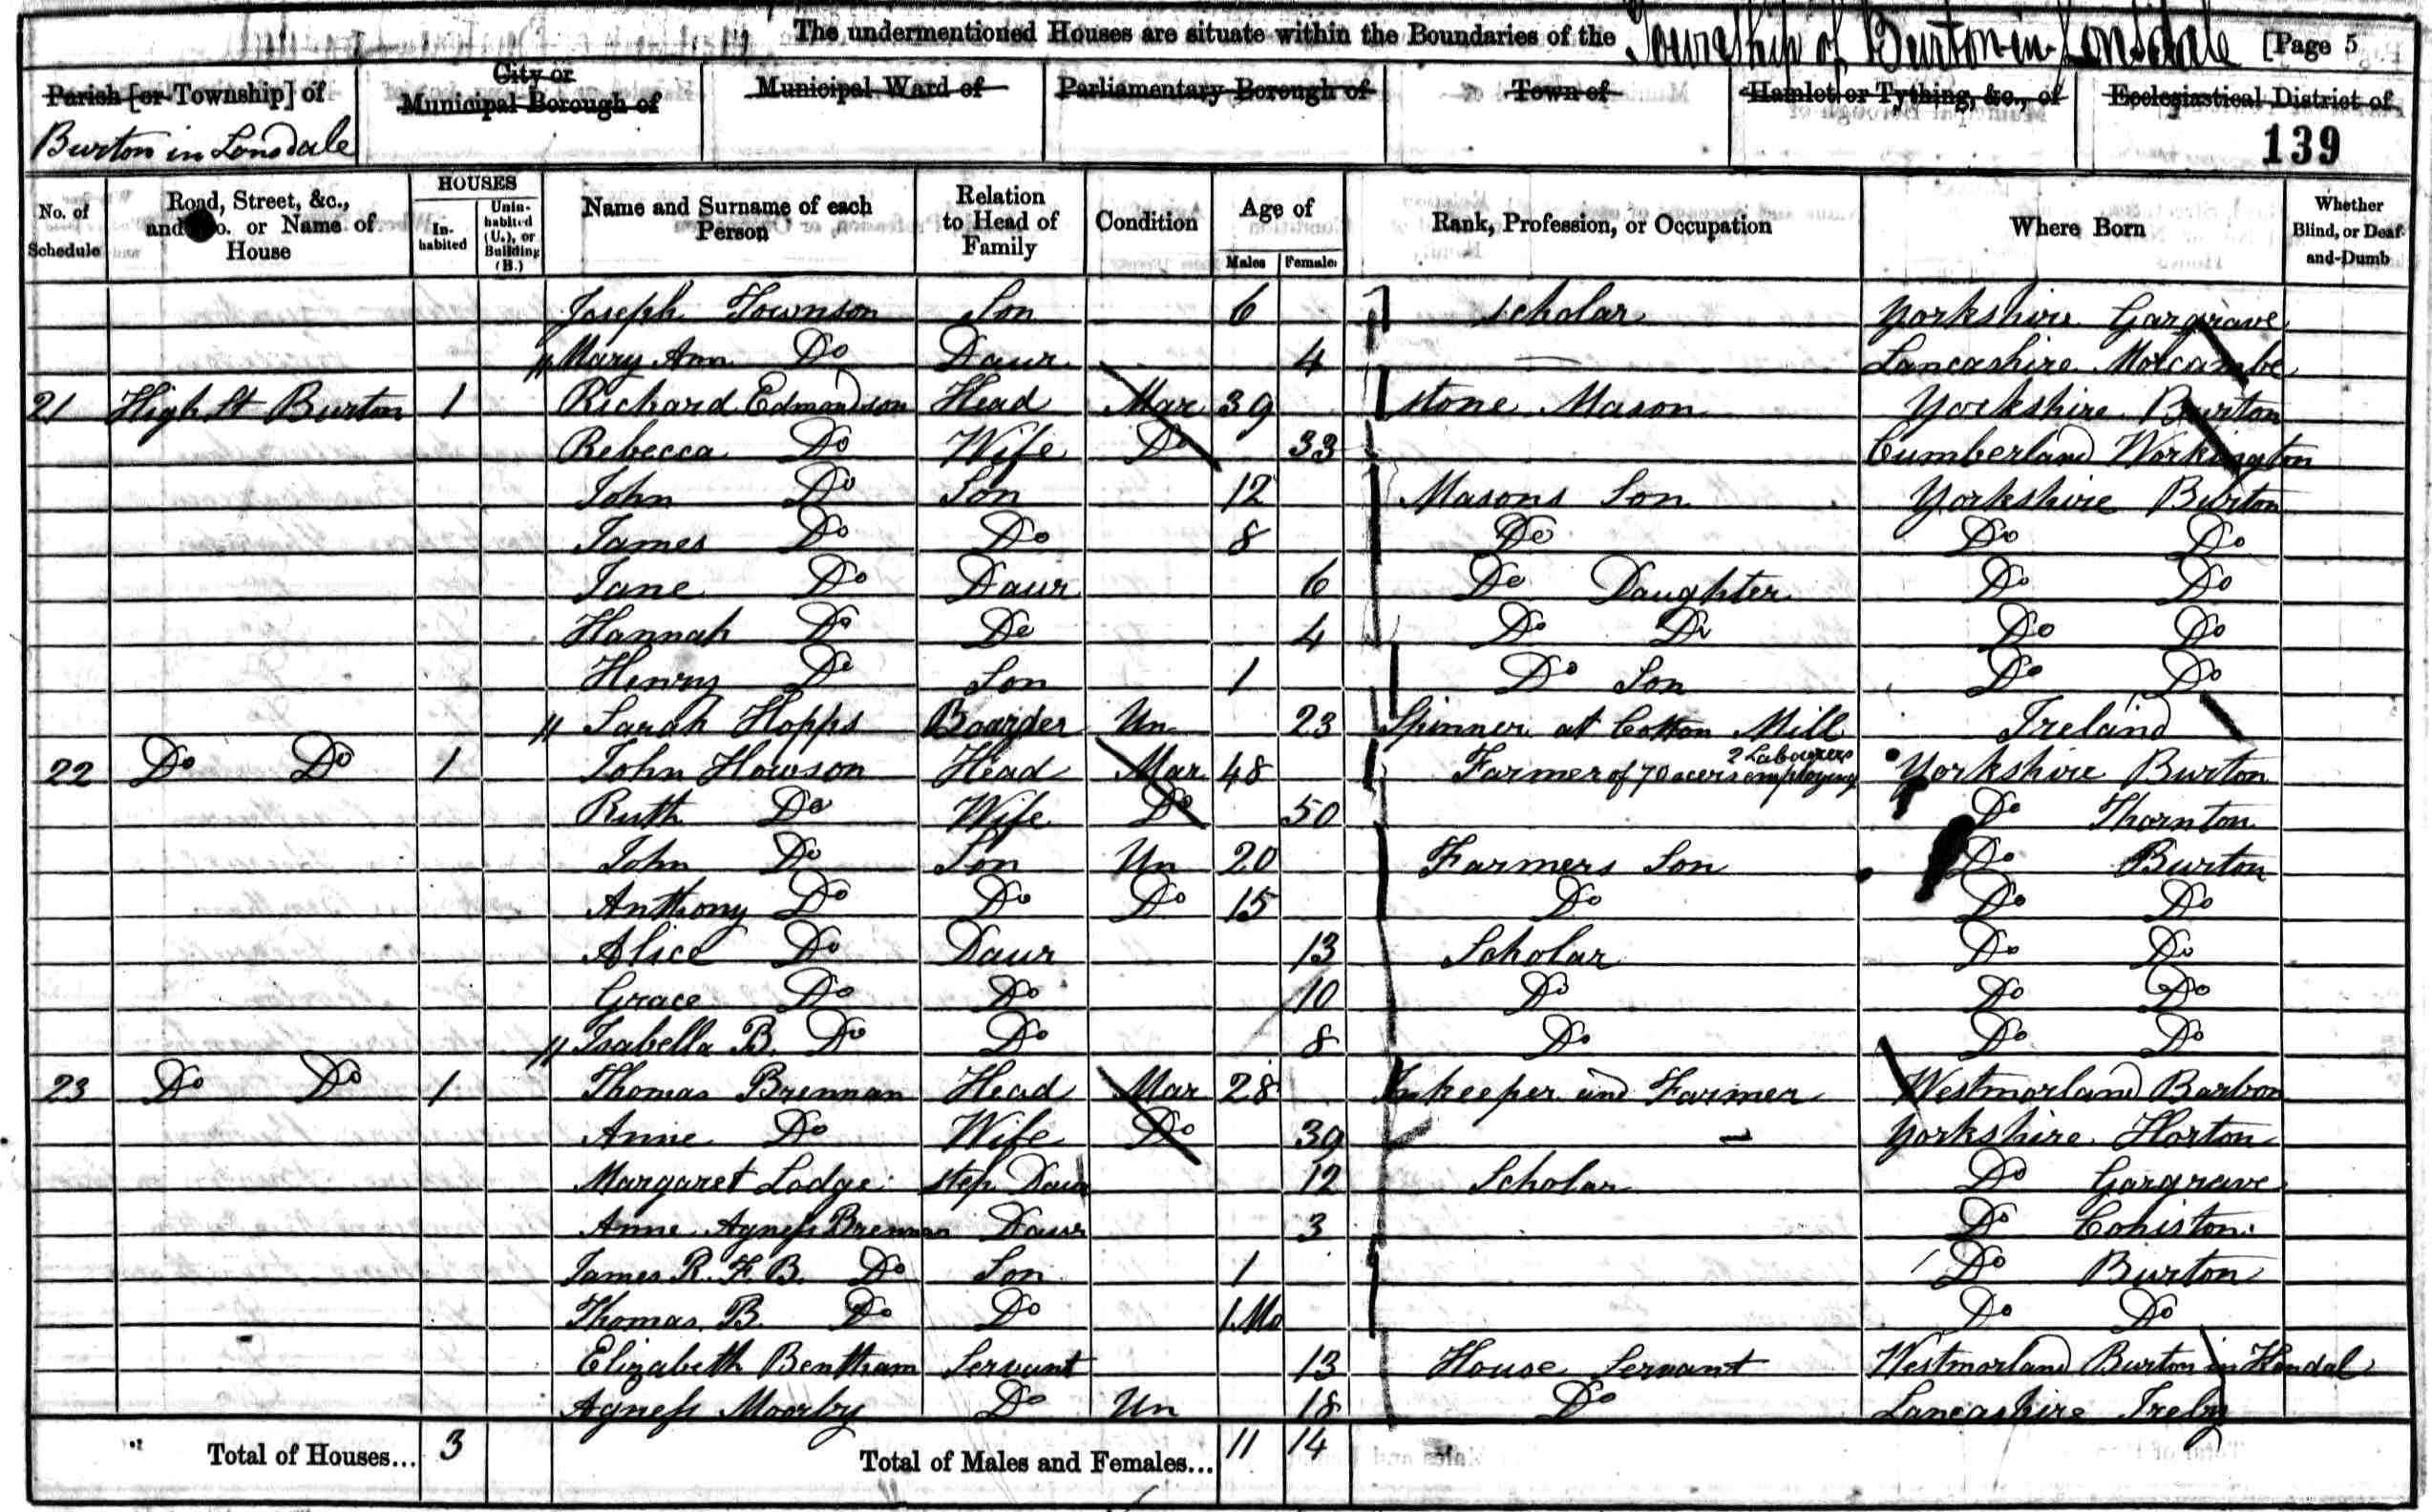 The undermentioned Houses are situate within the Boundaries of the Township of Burton-in-Lonsdale [Page 5
Parish [or Township] of City or Municipal Borough of Municipal Ward of Parliamentary Borough of Town of Hamlet or Tything, &c., of Ecclesiastical District of
Burton in Lonsdale 139
No. of Schedule Road, Street, &c., and No. or Name of House HOUSES Inhabited Uninhabited (U.), or Building (B.) Name and Surname of each Person Relation to Head of Family Condition Age of Males Females Rank, Profession, or Occupation Where Born Whether Blind, or Deaf-and-Dumb
Joseph Townson Son 6 Scholar Yorkshire Gargrave
Mary Ann Do Daur 4 — Lancashire Morcambe
21 High St Burton 1 Richard Edmondson Head Mar 39 Stone Mason Yorkshire Burton
Rebecca Do Wife Do 33 Cumberland Workington
John Do Son 12 Masons Son Yorkshire Burton
James Do Do 8 Do Do Do
Jane Do Daur 6 Do Daughter Do Do
Hannah Do Do 4 Do Do Do Do
Henry Do Son 1 Do Son Do Do
Sarah Hopps Boarder Un 23 Spinner at Cotton Mill Ireland
22 Do Do 1 John Howson Head Mar 48 Farmer of 70 acers employing 2 Labourers Yorkshire Burton
Ruth Do Wife Do 50 Do Thornton
John Do Son Un 20 Farmers Son Do Burton
Anthony Do Do Do 15 Do Do Do
Alice Do Daur 13 Scholar Do Do
Grace Do Do 10 Do Do Do
Isabella B. Do Do 8 Do Do Do
23 Do Do 1 Thomas Brennan Head Mar 28 Inkeeper and Farmer Westmorland Barbon
Anne Do Wife Do 39 — Yorkshire Horton
Margaret Lodge Step Daur 12 Scholar Do Gargrave
Anne Agness Brennan Daur 3 Do Coniston
James R. F. B. Do Son 1 Do Burton
Thomas B. Do Do 1 Mo Do Do
Elizabeth Bentham Servant 13 House Servant Westmorland Burton in Kendal
Agness Moorby Do Un 18 Do Lancashire Ireby
Total of Houses... 3 Total of Males and Females... 11 14